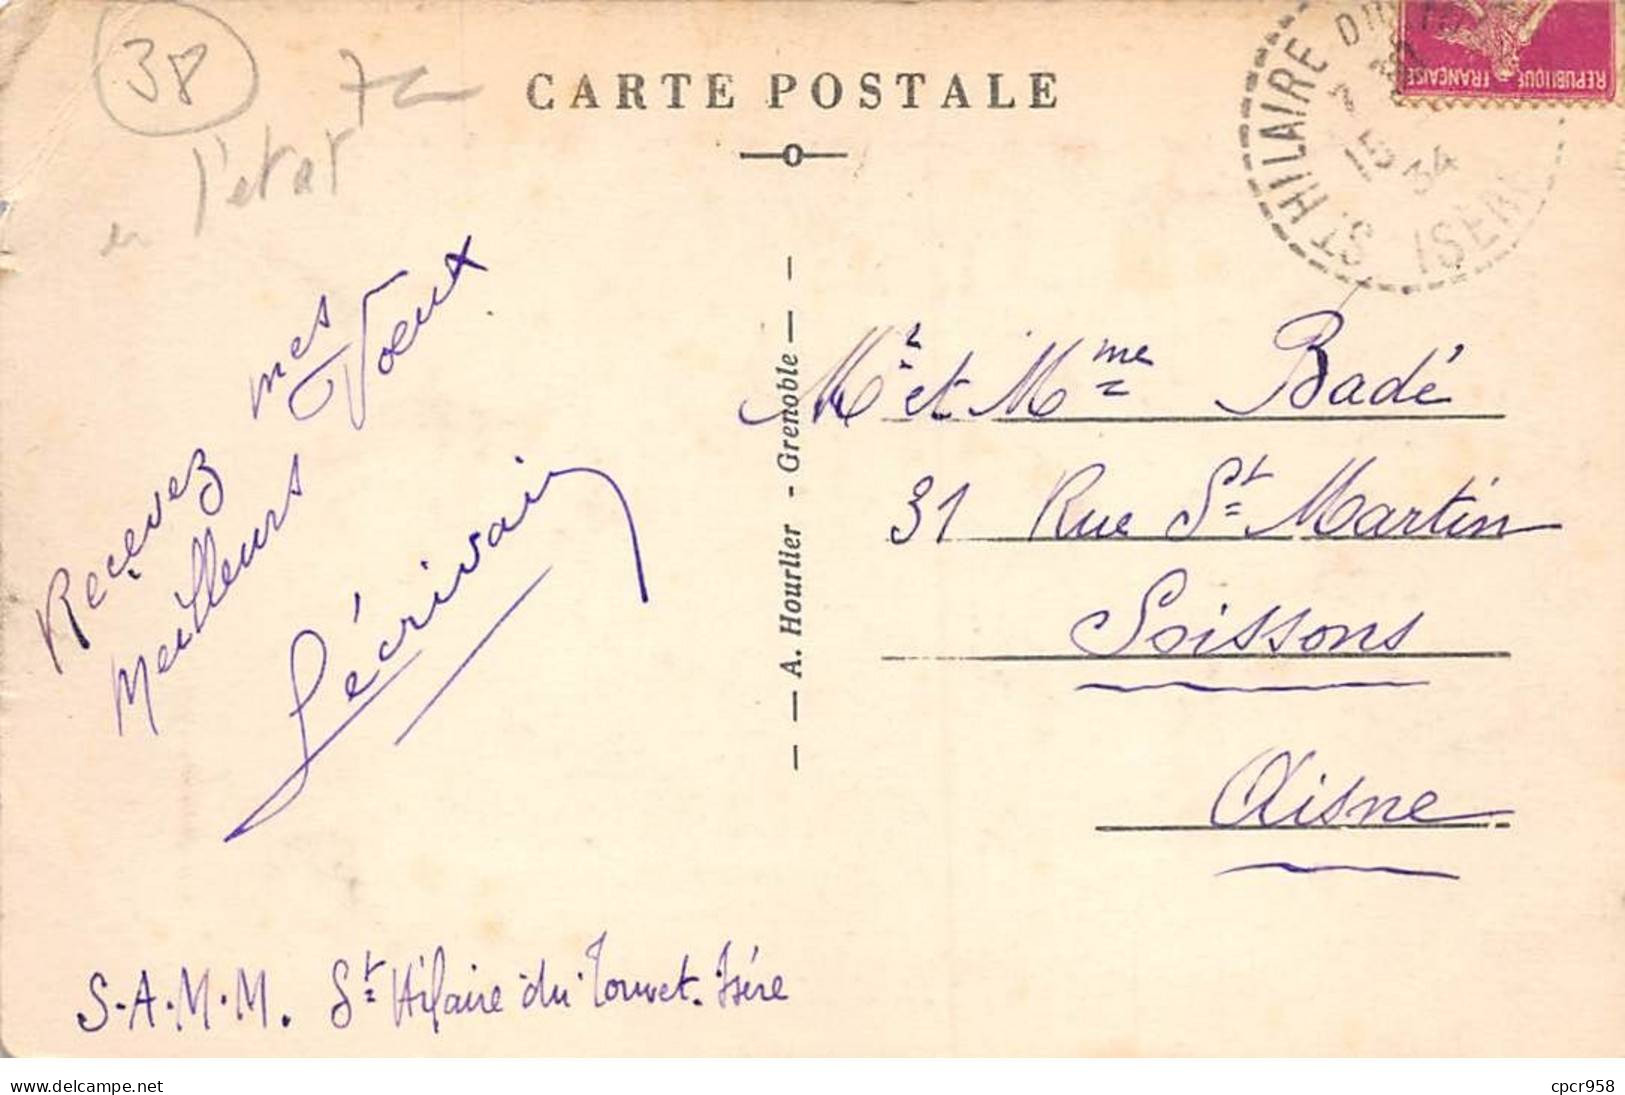 38
7
en l'état
CARTE POSTALE
ST HILAIRE DU
ISERE
15
34
REPUBLIQUE FRANÇAISE
Recevez mes
meilleurs Voeux
Lécrivain
S.A.M.M. St Hilaire du Touvet. Isère
A. Hourlier - Grenoble
Mr et Mme Badé
31 Rue St Martin
Soissons
Aisne
www.delcampe.net
cpcr958